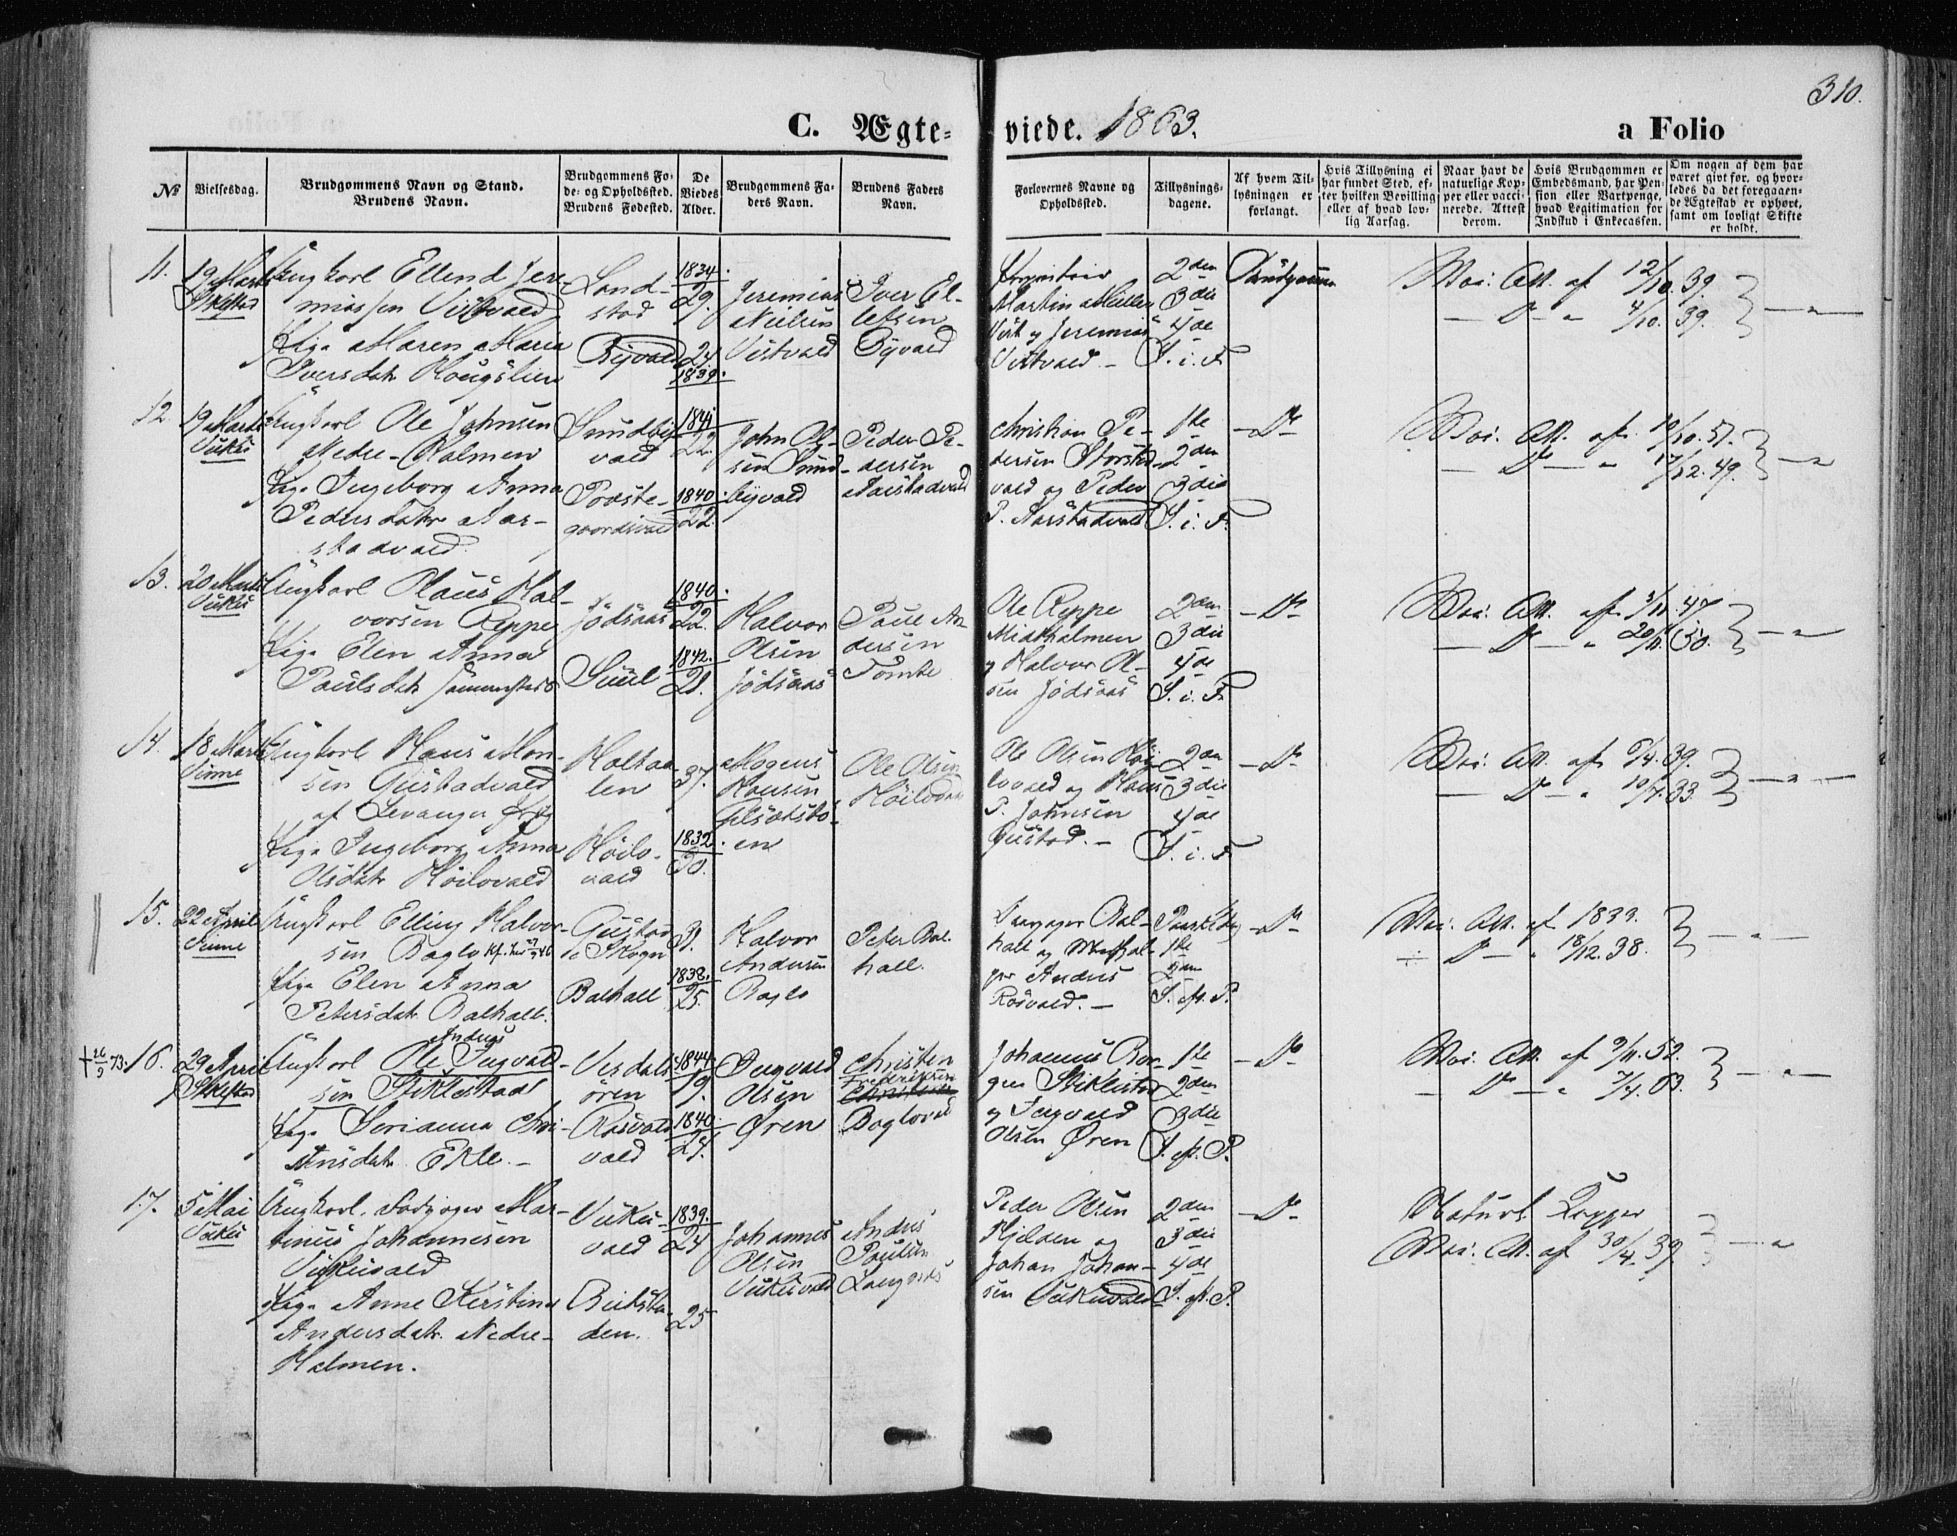 310.
C. Ægte-
viede. 1863.
a Folio
No
Vielsesdag.
Brudgommens Navn og Stand.
Brudens Navn.
Brudgommens Fø-
de- og Opholdssted.
Brudens Fødested.
De
Viedes
Alder.
Brudgommens Fa-
ders Navn.
Brudens Faders
Navn.
Forlovernes Navne og
Opholdssted.
Tillysnings-
dagene.
Af hvem Til-
lysningen er
forlangt.
Hvis Tillysning ei
har fundet Sted, ef-
ter hvilken Bevilling
eller af hvad lov-
lig Aarsag.
Naar havt de
naturlige Kop-
per eller vacci-
nerede. Attest
derom.
Hvis Brudgommen er
Embedsmand, har Pen-
sion eller Vartpenge,
hvad Legitimation for
Indskud i Enkecassen.
Om nogen af dem har
været givt før, og hvor-
ledes da det foregaaen-
de Ægteskab er ophørt,
samt om lovligt Skifte
er holdt.
11.
19 Marts
Ungkarl Ellend Jere-
miassen Vistvald
Pige Maren Maria
Iversdatr
Byvald
1834.
29.
24.
1839.
Jeremias
Nielsen
Vistvald
Iver El-
lefsen
Byvald
Martin Müller
Vist og Jeremias
Vistvald. -
2den
3die
4de
S. i. F.
Vac. Att. af 12/10. 39.
- Do - " 4/10. 39.
12.
19 Marts
Vuku
Ungkarl Ole Johnsen
Nedre-Halmen
Pige Ingeborg Anna
Pedersdatr Aar-
stadvald.
Sundby-
vald
1841
22.
1840.
22.
John Ol-
sen Sund-
byvald
Peder Pe-
dersen
Aarstadvald
Christian Pe-
dersen Storstad-
vald og Peder
P. Aarstadvald
1ste
2den
3die
S. i. F.
- Do -
Vac. Att. af 10/10. 51.
- Do - " 17/12. 49.
13.
20 Marts
Vuku
Ungkarl Olaus Hal-
vorsen Reppe
Pige Elen Anna
Paulsdatr
Jødsaas
Suul
1840.
22.
1842.
21.
Halvor
Olsen
Jødsaas
Paul An-
dersen
Tomte
Ole Reppe
Midthalmen
og Halvor Ol-
sen Jødsaas
2den
3die
4de
S. i. F.
- Do -
Vac. Att. af 3/11. 47
- Do - " 20/11. 50.
14.
18 Marts
Vinne
Ungkarl Hans Mon-
sen Gustadvald
af Levanger
Pige Ingeborg Anna
Olsdatr Høilovald
Høilo-
vald
37.
1832.
30.
Mogens
Hansen
en
Ole Olsen
Ole Olsen Høi-
lovald og Hans
P. Johnsen
Gustad. -
2den
3die
4de
S. i. F.
- Do -
Vac. Att. af 9/4. 39.
- Do - " 10/7. 33.
15.
22 April
Vinne
Ungkarl Elling Halvor-
sen Baglo
Pige Elen Anna
Petersdatr Balhall.
Gustad
i Skogn
Balhall
31.
1838.
25.
Halvor
Andersen
Baglo
Peter Bal-
hall.
hall og
Anders
Rosvald. -
1ste
2den
S. ef. P.
- Do -
Vac. Att. af 1833.
- Do - " 18/12. 38.
† 26/9 73.
16.
29 April
Ungkarl Ole Ingvald-
Anders
sen Stiklestad
Pige Serianna Chri-
stensdatr Ekle. -
Verdals-
øren
vald
1844.
19.
1840
24.
Ingvald
Olsen
Øren
Christen
Baglovald
Johannes Bor-
gen Stiklestad
og Ingvald
Olsen Øren
1ste
2den
3die
S. ef. P.
- Do -
Vac. Att. af 9/11. 52.
- Do - " 7/4. 63.
17.
5 Mai
Vuku
Ungkarl, Mar-
tinus Johannesen
Vukuvald
Pige Anne Kerstina
Andersdatr. Nedre-
Halmen.
Vuku-
vald
den.
1839.
24
25
Johannes
Olsen
Vukuvald
Anders
Paulsen
Peder Olsen
Hjelden og
Johan Johan-
sen Vukuvald
2den
3die
4de
S. ef. P.
- Do -
Naturl. Kopper
Vac. Att. af 30/4. 39.